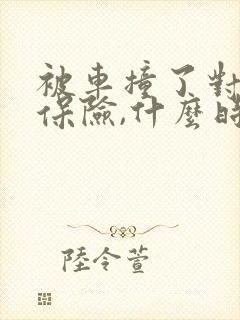 被車撞了對
保險,什麼時
陸令萱